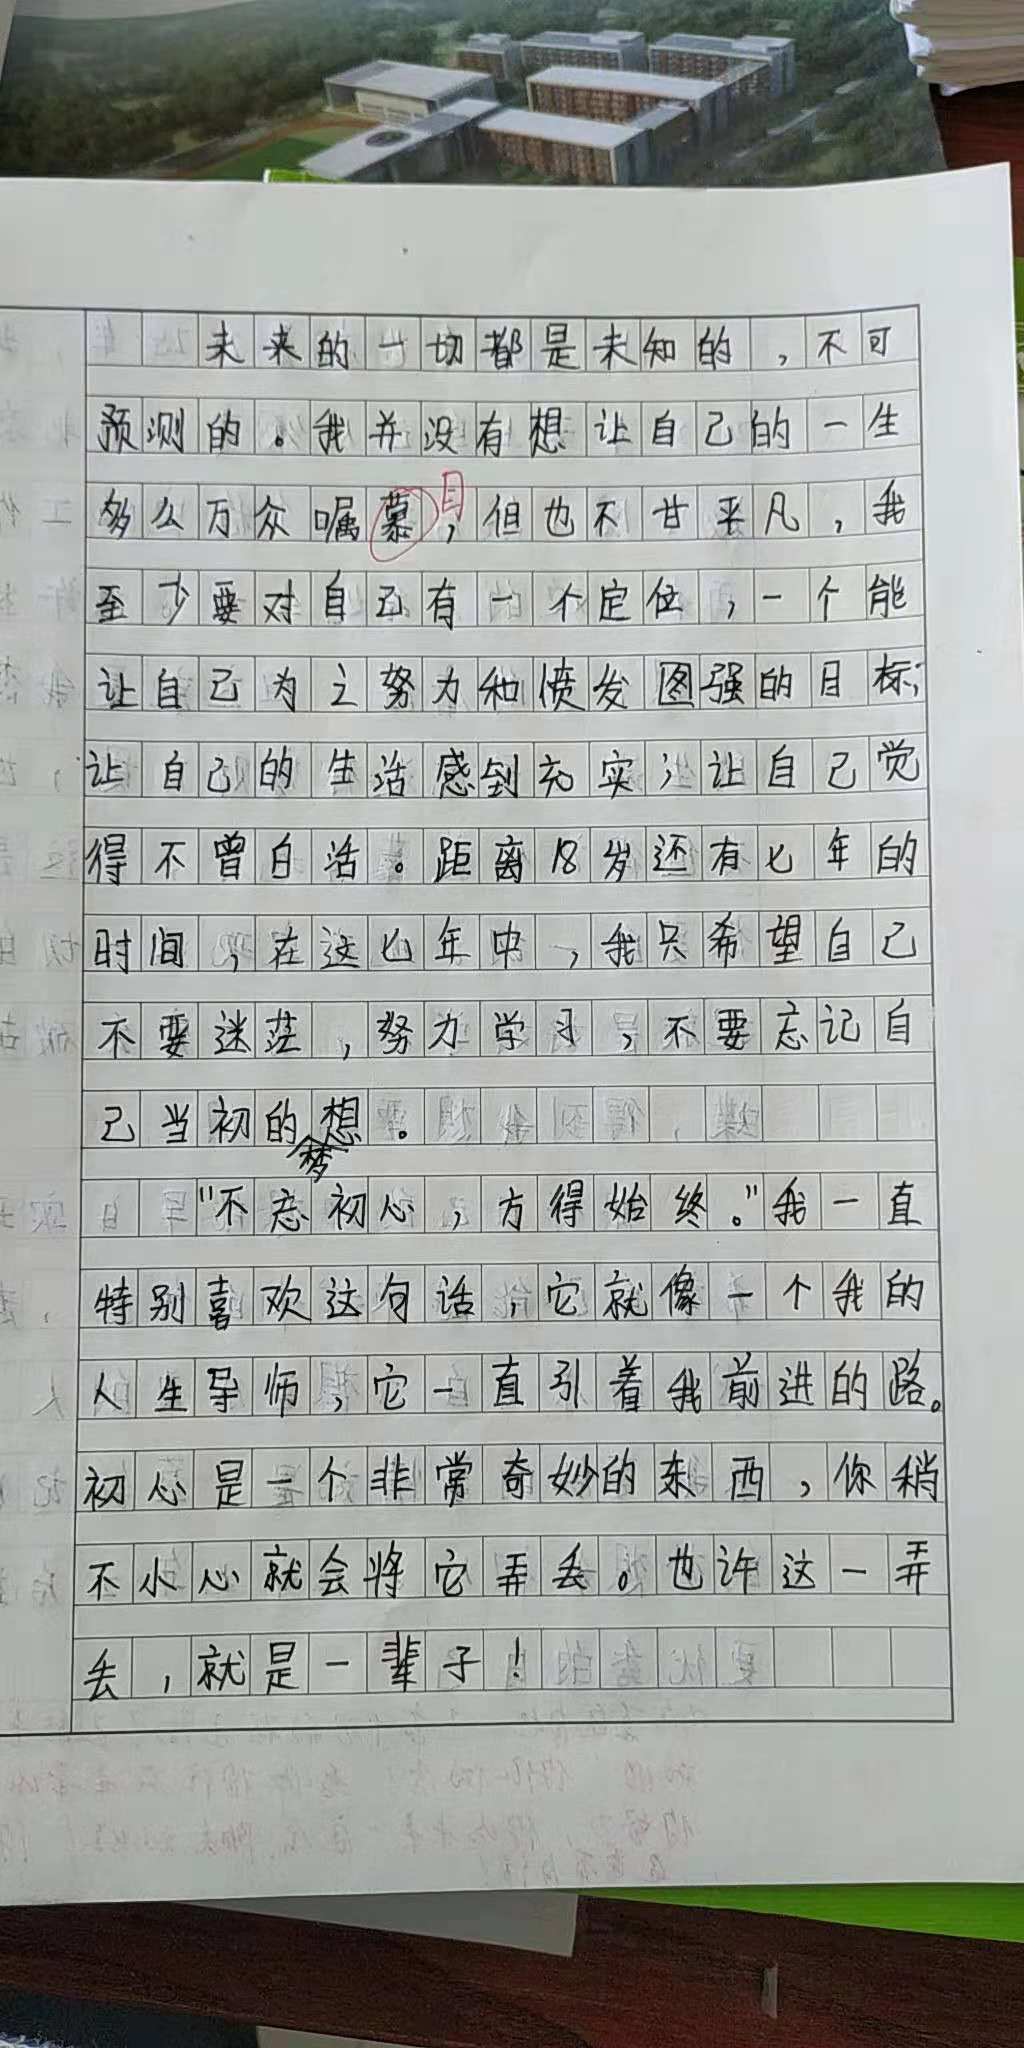 未来的一切都是未知的，不可
预测的。我并没有想让自己的一生
多么万众嘱慕，但也不甘平凡，我
目
至少要对自己有一个定位，一个能
让自己为之努力和愤发图强的目标；
让自己的生活感到充实；让自己觉
得不曾白活。距离18岁还有七年的
时间，在这七年中，我只希望自己
不要迷茫，努力学习，不要忘记自
己当初的梦想。
"不忘初心，方得始终。"我一直
特别喜欢这句话，它就像一个我的
人生导师，它一直引着我前进的路。
初心是一个非常奇妙的东西，你稍
不小心就会将它弄丢。也许这一弄
丢，就是一辈子！